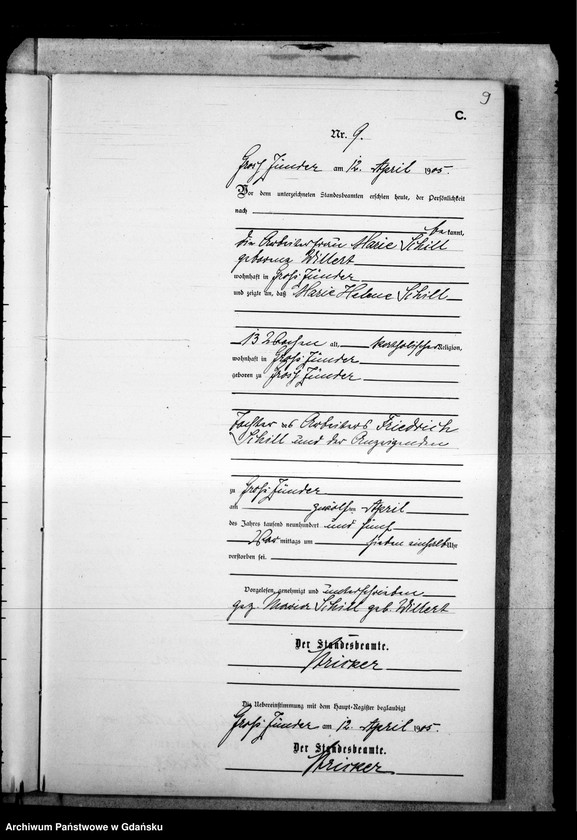 9
C.
Nr. 9.
Groß Zünder am 12. April 1905.
Vor dem unterzeichneten Standesbeamten erschien heute, der Persönlichkeit
nach
bekannt,
die Arbeiterfrau Marie Schill
geborene Willert
wohnhaft in Groß Zünder
und zeigte an, daß Marie Helene Schill
13 Wochen alt, katholischer Religion,
wohnhaft in Groß Zünder
geboren zu Groß Zünder
Tochter des Arbeiters Friedrich
Schill und der Anzeigenden
zu Groß Zünder
am zwölften April
des Jahres tausend neunhundert und fünf
Vor mittags um sieben einhalb Uhr
verstorben sei.
Vorgelesen, genehmigt und unterschrieben
gez. Maria Schill geb. Willert
Der Standesbeamte.
Stricker
Die Uebereinstimmung mit dem Haupt-Register beglaubigt
Groß Zünder am 12. April 1905.
Der Standesbeamte.
Stricker
Archiwum Państwowe w Gdańsku